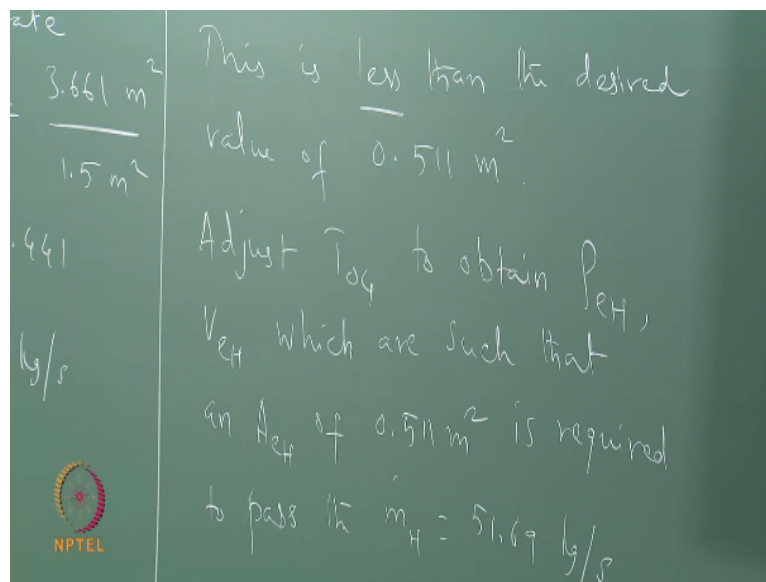 ate
3.661 m²
1.5 m²
.441
kg/s
This is less than the desired
value of 0.511 m².
Adjust T₀₄ to obtain ρₑH,
VₑH which are such that
an AₑH of 0.511 m² is required
to pass the ṁH = 51.69 kg/s
NPTEL